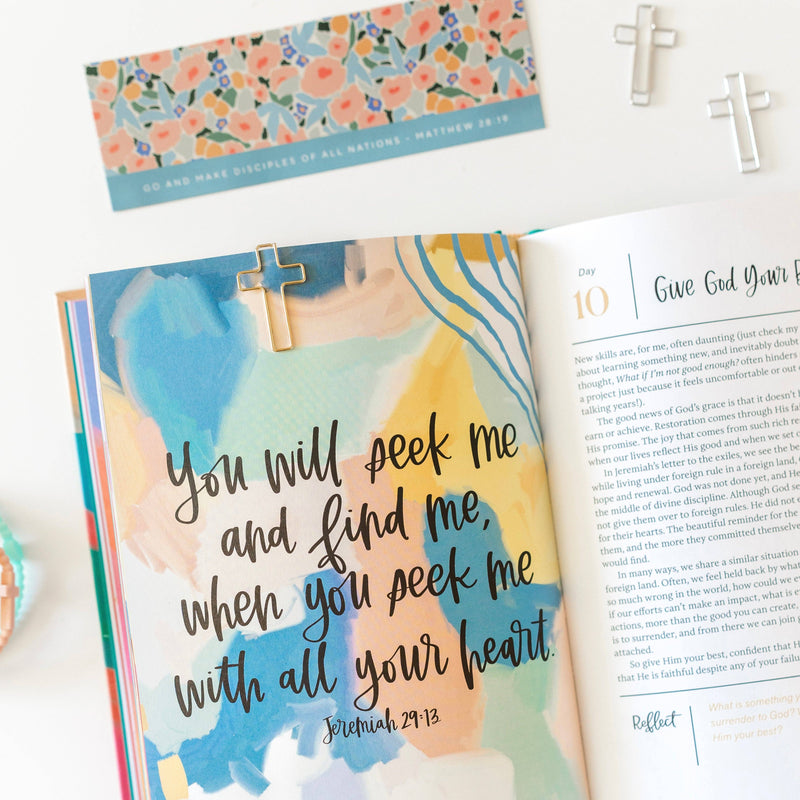 GO AND MAKE DISCIPLES OF ALL NATIONS - MATTHEW 28:19
You will seek me
and find me,
when you seek me
with all your heart.
Jeremiah 29:13
Day
10
Give God Your
New skills are, for me, often daunting (just check my
about learning something new, and inevitably doubt
thought, What if I'm not good enough? often hinders
a project just because it feels uncomfortable or out
talking years!).
The good news of God's grace is that it doesn't
earn or achieve. Restoration comes through His
His promise. The joy that comes from such rich
when our lives reflect His good and when we set
In Jeremiah's letter to the exiles, we see the
while living under foreign rule in a foreign land,
hope and renewal. God was not done yet, and He
the middle of divine discipline. Although God
not give them over to foreign rules. He did not
for their hearts. The beautiful reminder for the
them, and the more they committed themselves
would find.
In many ways, we share a similar situation
foreign land. Often, we feel held back by what
so much wrong in the world, how could we
if our efforts can't make an impact, what is
actions, more than the good you can create,
is to surrender, and from there we can join
attached.
So give Him your best, confident that
that He is faithful despite any of your
Reflect
What is something
surrender to God?
Him your best?